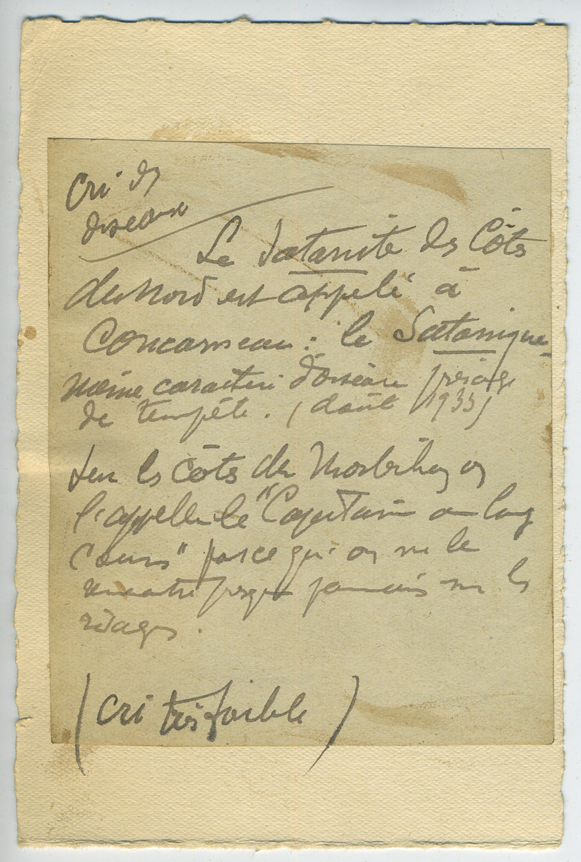 Cri ds
oiseaux
Le Sataniste des Côtes
du Nord est appelé à
Concarneau : le Satanique
même caractère d'oiseau présage
de tempête. (août 1935)
Sur les côtes du Morbihan on
l'appelle le "Capitaine au long
cours" parce qu'on ne le
rencontre presque jamais sur les
rivages.
(cri très faible)